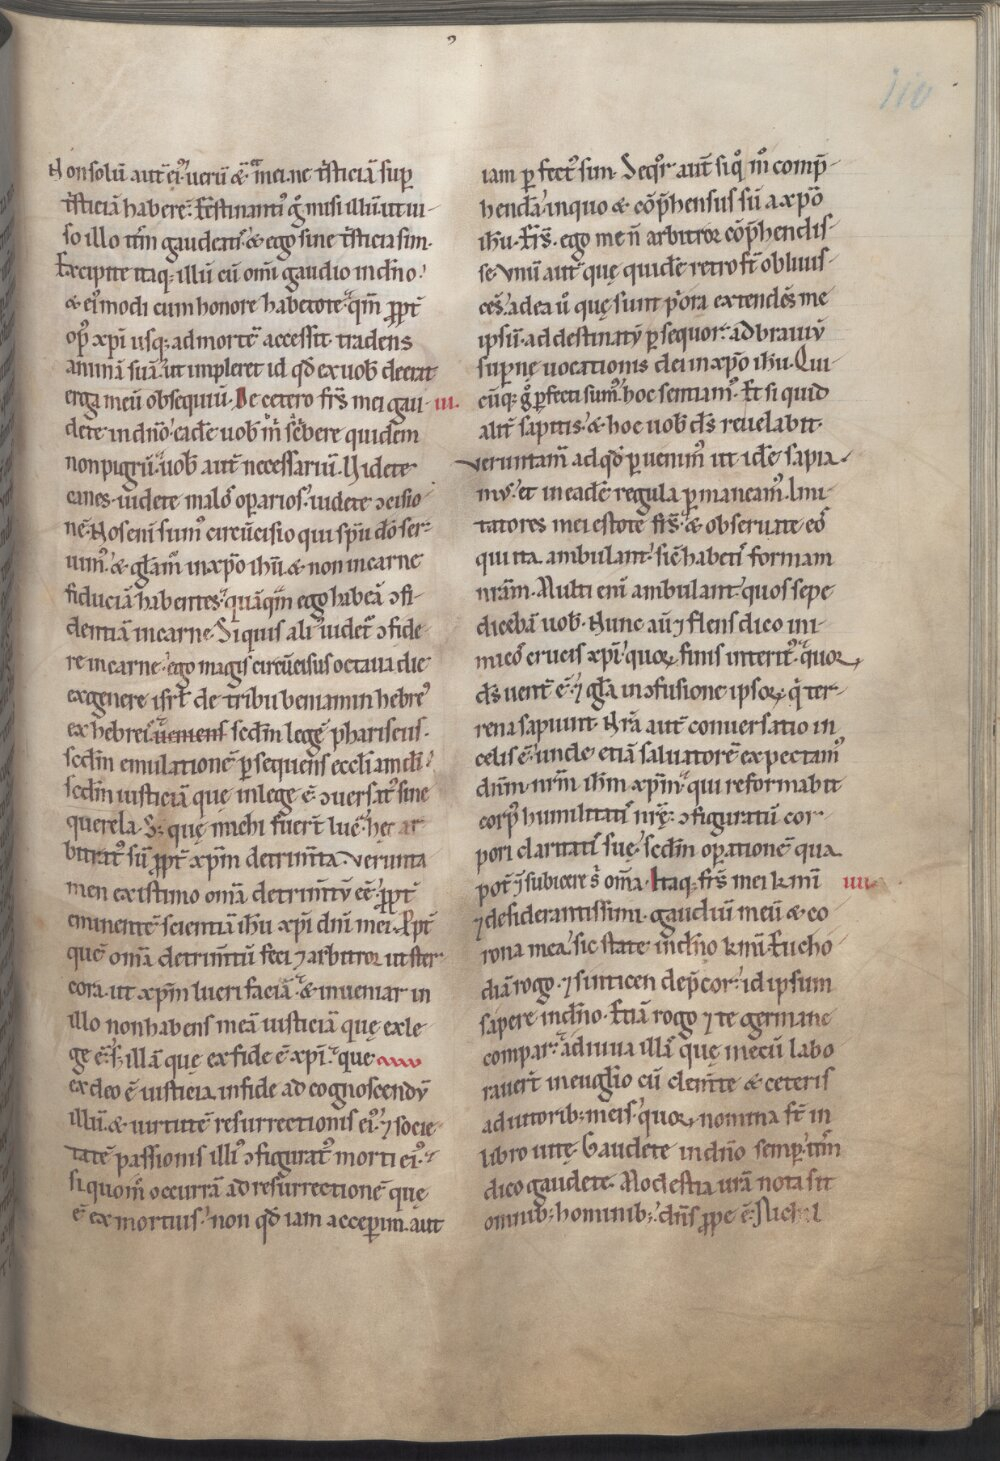 110
Non solū aut̄ ei᷒ ueru᷒ & mei. ne t̄sticiā sup̄
t̄sticiā haberē. Festinanti᷒ g̊ misi illū. ut ui-
so illo it̄m gaudeatis. & ego sine t̄sticia sim.
Excipite itaq; illū cū om̄i gaudio in dn̄o.
& ei᷒modi cum honore habetote. qm̄ ꝓpt̄
op᷒ xp̄i usq; ad mortē accessit. tradens
animā suā. ut impleret id qd̄ ex uob̄ deerat
erga meū obsequiū. De cetero fr̄s mei gau- III.
dete in dn̄o. eadē uob̄ m̄ sc̄bere quidem
non pigrū. uob̄ aut̄ necessariū. Videte
canes. uidete malos oꝑarios. uidete ↄcisio
nē. Nos eni᷒ sum᷒ circūcisio qui sp̄u dō ser-
uim᷒. & gl̄am᷒ in xp̄o ih̄u. & non in carne
fiduciā habentes. quāqm̄ ego habeā ↄfi-
dentiā in carne. Si quis ali᷒ uidet̄ ↄfide-
re in carne. ego magis circūcisus octaua die
ex genere isrl̄ de tribu beniamin hebre᷒
ex hebreis. uemens scd̄m legē phariseus.
scd̄m emulationē ꝑsequens eccl̄iam di᷒.
scd̄m iusticiā quę in lege ē ↄuersat᷒ sine
querela. S; quę michi fuer̄t luc̄. hec ar
bitrat᷒ sū ꝓpt̄ xp̄m detrim̄ta. verunta
men existimo om̄a detrim̄tū eē. ꝓpt̄
eminentē scientiā ih̄u xp̄i dn̄i mei. Ꝓpt̄
quē om̄a detrim̄tū feci ⁊ arbitror ut ster
cora. ut xp̄m lucri faciā. & inueniar in
illo non habens meā iusticiā quę ex le-
ge ē. s; illā quę ex fide ē xp̄i. que
ex deo ē iusticia in fide ad cognoscendū
illū. & uirtutē resurrectionis ei᷒. ⁊ socie-
tatē passionis illi᷒ ↄfigurat᷒ morti ei᷒.
si quom̊ occurrā ad resurrectionē quę
ē ex mortuis. non qd̄ iam acceperim. aut
iam ꝑfect᷒ sim. Seqr̊ aut̄ si qͦ m̊ comp̄-
hendā. in quo & cōp̄hensus sū a xp̄o
ih̄u. Fr̄s. ego me n̄ arbitror cōp̄hendis-
se. Vnū aut̄ quę quidē retro st̄ obliuis-
cēs. ad ea ů quę sunt p̄ora extendēs me
ipsū. ad destinatū ꝑsequor. ad brauiū
supernę uocationis dei in xp̄o ih̄u. Qui
cūq; g̊ ꝑfecti sum᷒. hoc sentiam᷒. Et si quid
alit̄ sapitis. & hoc uob̄ ds̄ reuelabit.
Veruntam̄ ad qd̄ ꝑuenim᷒ ut idē sapia-
mus. et in eadē regula ꝑmaneam᷒. Imi-
tatores mei estote fr̄s. & obseruate eos
qui ita ambulant. sic̄ habetis formam
nr̄am. Multi eni᷒ ambulant. quos sepe
dicebā uob̄. Nunc aū ⁊ flens dico ini-
micos crucis xp̄i. quoꝝ finis interit᷒. quoꝝ
ds̄ uent̄ ē. ⁊ gl̄a in ↄfusione ipsoꝝ. qͥ ter-
rena sapiunt. Nr̄a aut̄ conuersatio in
celis ē. unde etiā saluatorē expectam᷒
dn̄m nr̄m ih̄m xp̄m. qui reformabit
corp᷒ humilitatis nr̄ę. ↄfiguratū cor-
pori claritatis suę. scd̄m oꝑationē qua
pot̄ ⁊ subicere s̄ om̄a. Itaq; fr̄s mei k̄mi IIII.
⁊ desiderantissimi. gaudiū meū & co
rona mea. sic state in dn̄o k̄mi. Eucho
diā rogo. ⁊ sinticen dep̄cor. id ipsum
sapere in dn̄o. Etiā rogo ⁊ te germane
compar. adiuua illas quę mecū labo
rauer̄t in eugl̄io cū clem̄te & ceteris
adiutorib; meis. quoꝝ nomina st̄ in
libro uitę. Gaudete in dn̄o semper. itm̄
dico gaudete. Modestia ur̄a nota sit
omnib; hominib;. dn̄s ꝓpe ē. Nichil